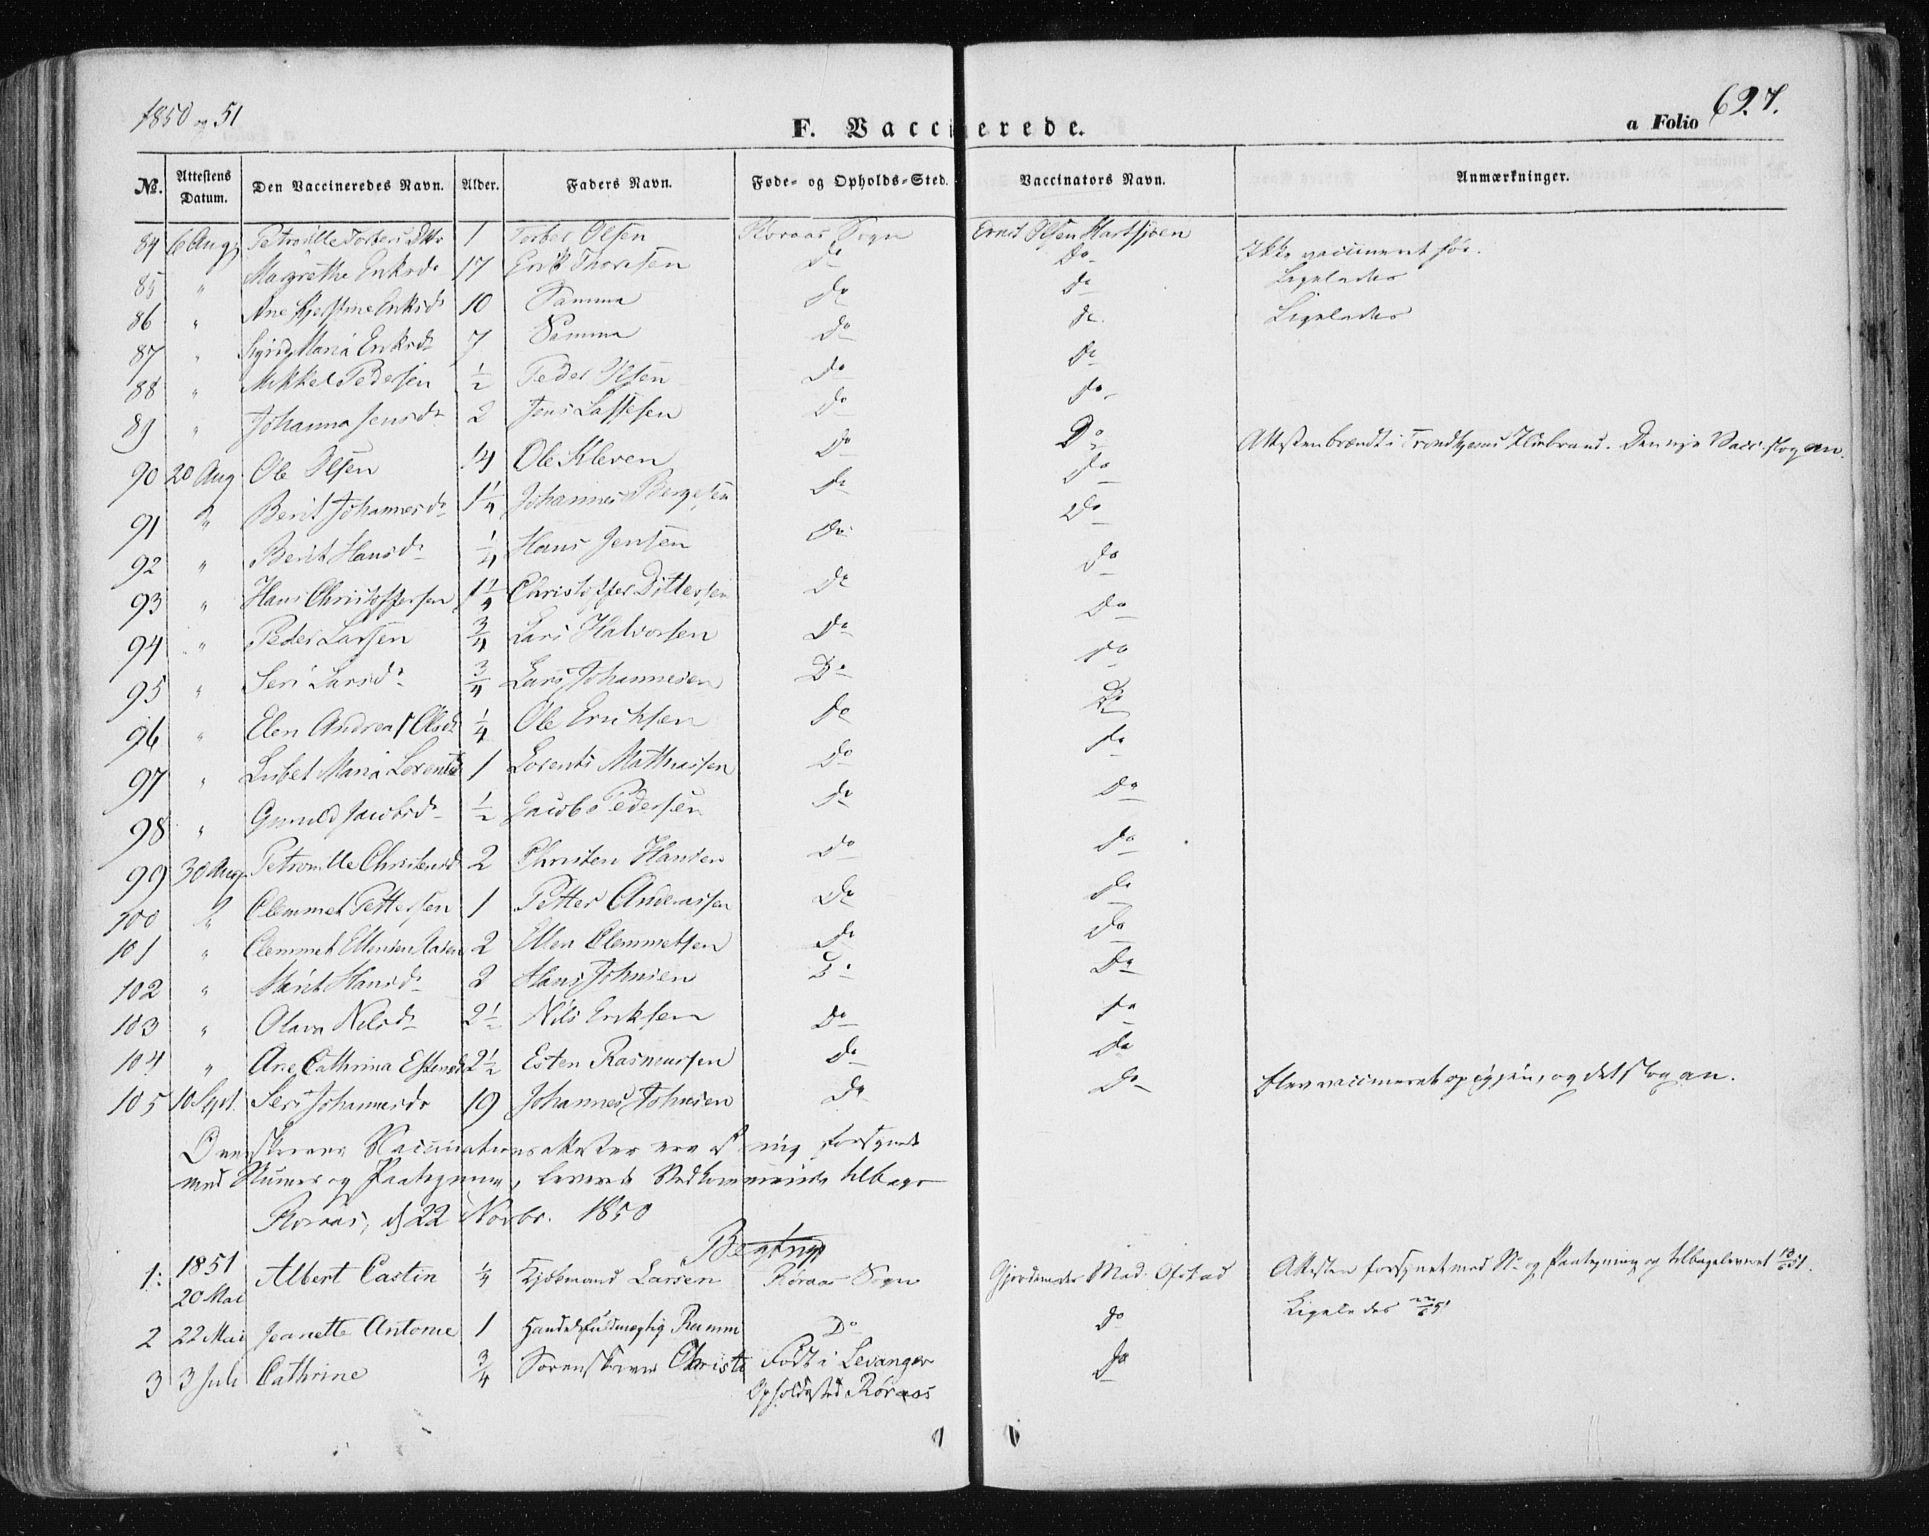 1850 og 51
F. Vaccinerede.
a Folio 627.
No. Attestens Datum. Den Vaccineredes Navn. Alder. Faders Navn. Føde- og Opholds-Sted. Vaccinators Navn. Anmærkninger.
84 6 Aug Petronille Torbersdtr 1 Torber Olsen Røraas Sogn Ernst Olsen
85 " Magrethe Eriksd. 17 Erik Thoresen Do Do Ikke vaccineret før.
86 " Ane Eriksd. 10 Samma Do Do Ligeledes
87 " Sigrid Maria Eriksd. 7 Samma Do Do Ligeledes
88 " Mikkel Pedersen 1/2 Peder Olsen Do Do
89 " Johanna Jensdr 2 Jens Lassesen Do Do
90 20 Aug Ole Olsen 14 Ole Kleven Do Do Attesten brændt i Trondhjems Ildebrand. Den nye Vacc. slog an.
91 " Berit Johannesdr 1 1/4 Johannes Bergesen Do Do
92 " Berit Hansdr 1/4 Hans Jensen Do Do
93 " Hans Christophersen 1 1/4 Christopher Do Do
94 " Peder Larsen 3/4 Lars Halvorsen Do Do
95 " Seri Larsdr 3/4 Lars Johannesen Do Do
96 " Elen Andrea Olsdr 1/4 Ole Eriksen Do Do
97 " Lisbet Maria Lorentsd 1 Lorents Matthiassen Do Do
98 " Gunild Jacobsdr 1/2 Jacob Pedersen Do Do
99 30 Aug Petronille Christensd 2 Christen Hansen Do Do
100 " Clemmet Pettersen 1 Petter Anderassen Do Do
101 " Clemmet Ellensen 2 Ellen Clemmetsen Do Do
102 " Marit Hansdr 2 Hans Johnsen Do Do
103 " Olava Nilsdr 2 1/2 Nils Eriksen Do Do
104 " Ane Cathrina Estensd 2 1/2 Esten Rasmussen Do Do
105 10 Sept. Seri Johannesdr 19 Johannes Johnsen Do Do Blev vaccineret op igjen, og det slog an.
Ovenskrevne Vaccinationsattester ere af mig forsynede
med Numer og Paategning, leverede tilbage
Røraas, d 22 Novbr. 1850
1851
1. 20 Mai Albert Castin 1/4 Larsen Røraas Sogn Gjordemoder Mad. Ofstad Attesten forsynet med No og Paategning og tilbageleveret
2 22 Mai Jeanette Antonie 1 Handelsfuldmægtig Ramm Do Do Ligeledes
3 3 Juli Cathrine 3/4 Sorenskriver Christi Født i Levanger Do
Opholdssted Røraas